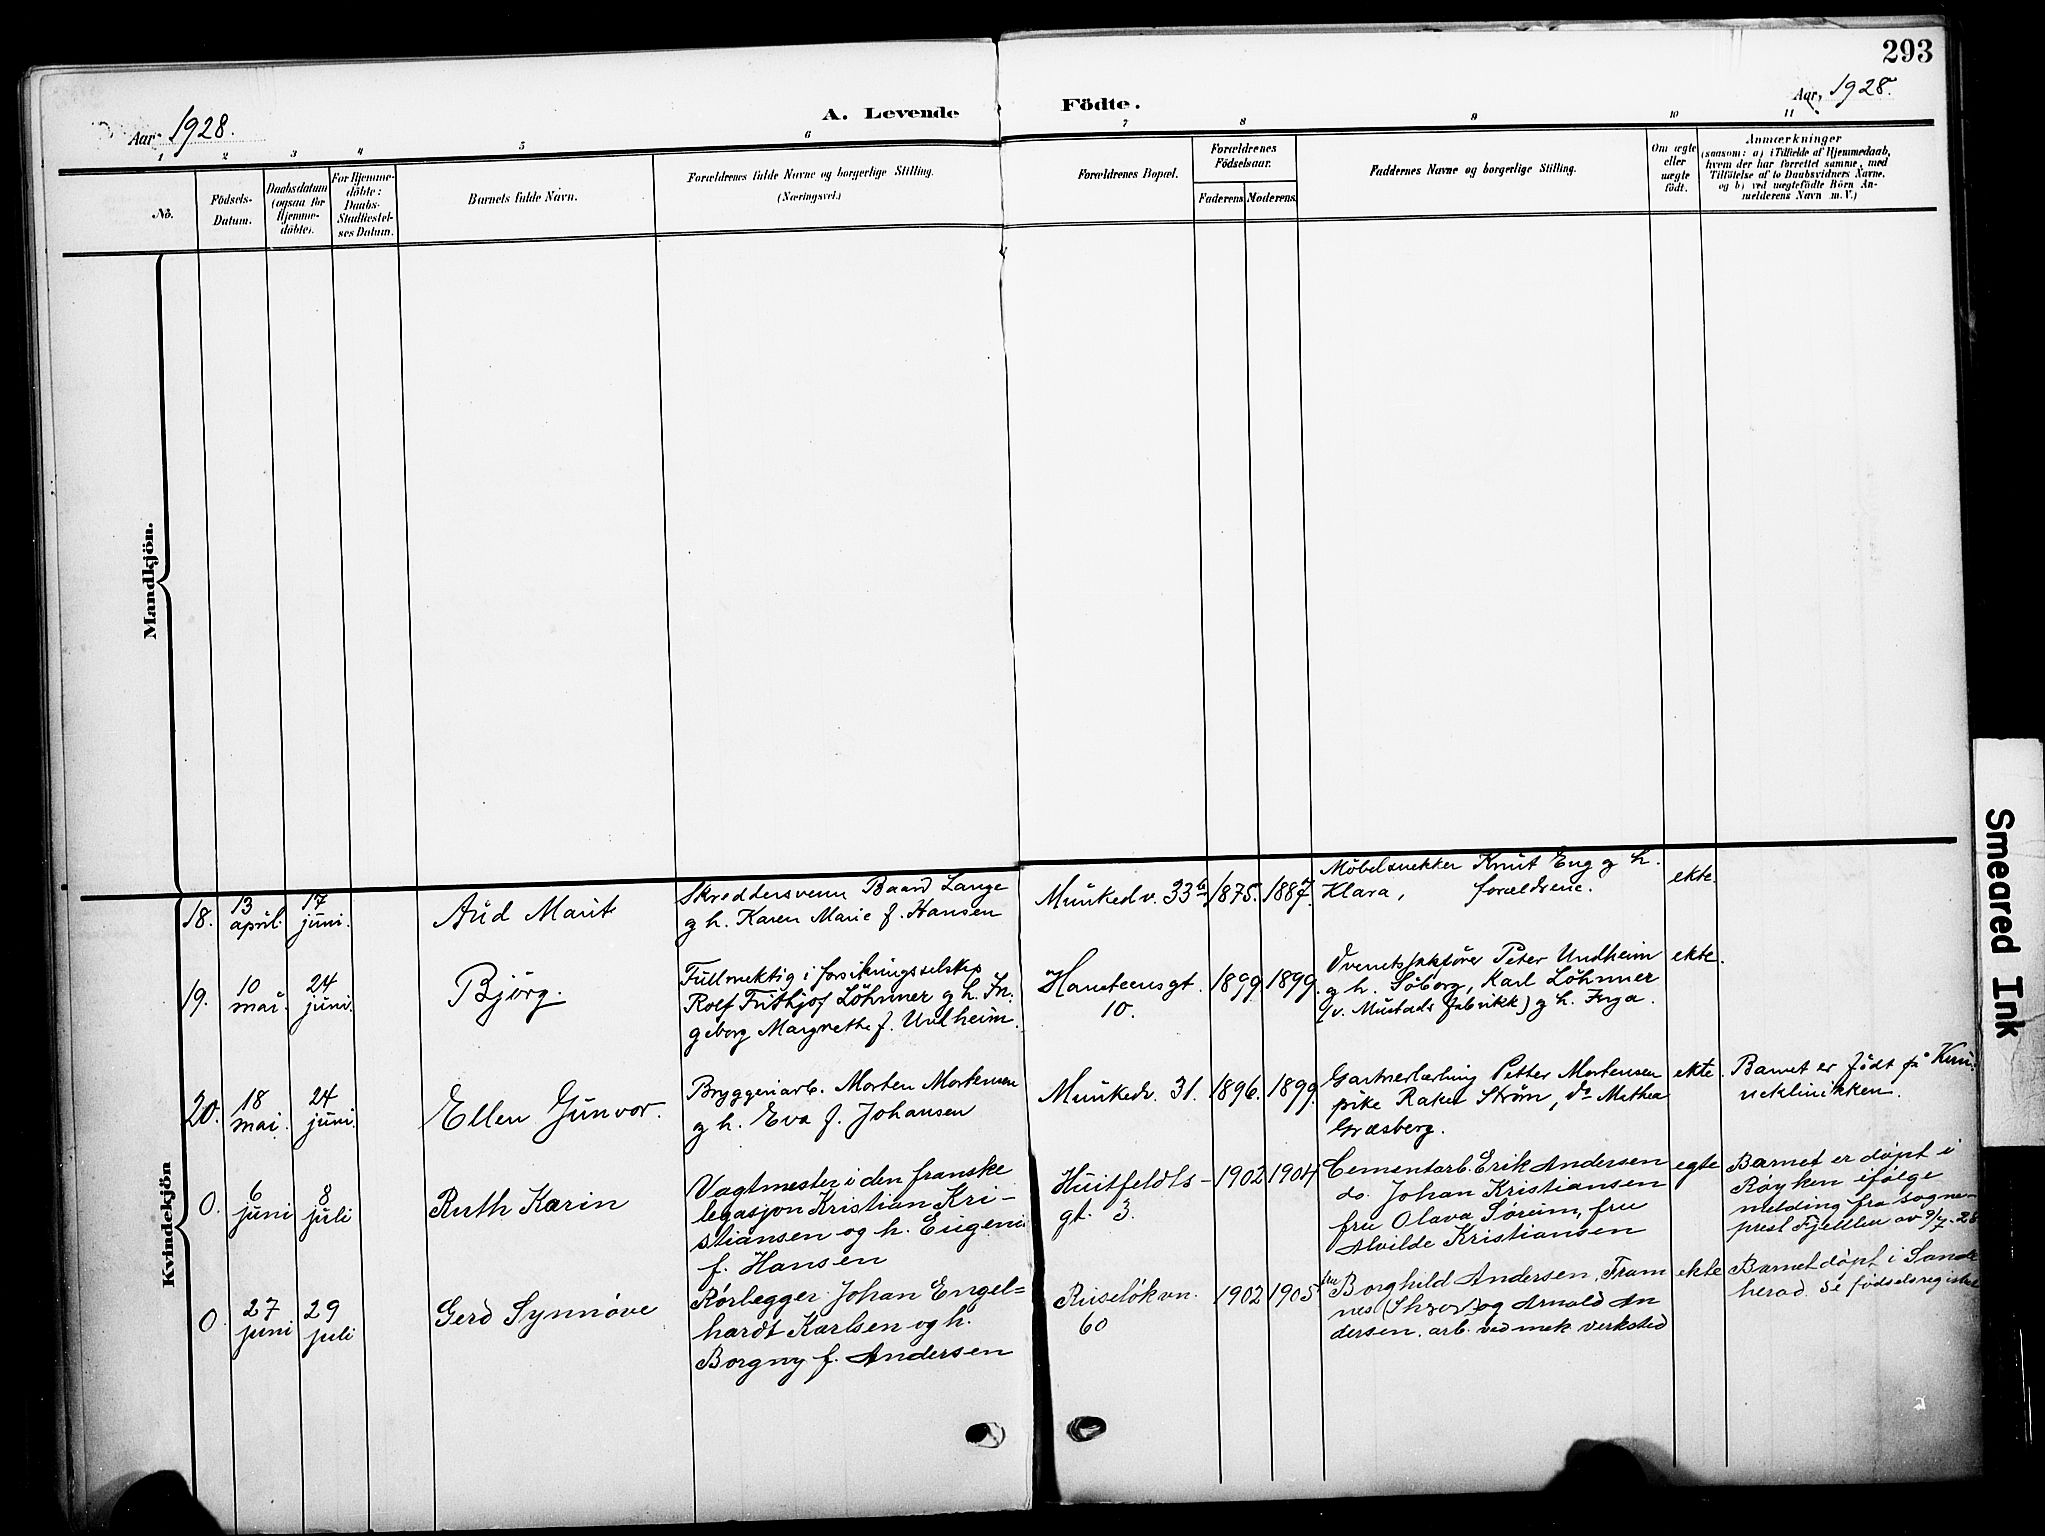 293
Aar, 1928.
A. Levende Födte.
Aar, 1928.
1 2 3 4 5 6 7 8 9 10 11
No.
Födsels-
Datum.
Daabsdatum
(ogsaa for
Hjemme-
döbte).
For Hjemme-
döbte:
Daabs-
Stadfæstel-
ses Datum.
Barnets fulde Navn.
Forældrenes fulde Navne og borgerlige Stilling.
(Næringsvei.)
Forældrenes Bopæl.
Forældrenes
Födselsaar.
Faderens. Moderens.
Faddernes Navne og borgerlige Stilling.
Om ægte
eller
uægte
födt.
Anmærkninger
(saasom: a) i Tilfælde af Hjemmedaab,
hvem der har forrettet samme, med
Tilföielse af to Daabsvidners Navne,
og b) ved uægtefödte Börn An-
melderens Navn m. V.)
Mandkjön.
Kvindekjön
18.
13
april.
17
juni.
Aud Marit
Skreddersvenn Baard Lange
g h. Karen Marie f. Hansen
Munkedv. 33b
1875.
1887.
Møbelsnekker Knut Eng g h.
Klara, forældrene.
ekte.
19.
10
mai.
24
juni.
Bjørg.
Fullmektig i forsikringsselskap
Rolf Frithjof Löhnner g h. In-
geborg Margrethe f. Undheim.
Hansteensgt.
10.
1899
1899.
Peter Undheim
g h. Søborg, Karl Löhnner
(v. Mustads fabrikk) g h. Inga.
ekte.
20.
18
mai.
24
juni.
Ellen Gunvor.
Bryggeriarb. Morten Mortensen
g h. Eva f. Johansen
Munkedv. 31.
1896.
1899.
Gartnerlærling Petter Mortensen
pike Rakel Strøm, do Mathea
Græsberg.
ekte.
Barnet er født på Kvin-
neklinikken.
0.
6
juni
8
juli
Ruth Karin
Vagtmester i den franske
legasjon Kristian Kri-
stiansen og h. Eugenie
f. Hansen
Huitfeldts-
gt. 3.
1902
1904
Cementarb. Erik Andersen
do. Johan Kristiansen
fru Olava Søreim, fru
Alvilde Kristiansen
egte
Barnet er døpt i
Røyken ifølge
melding fra sogne-
prest Fjellbu av 9/7-28
0.
27
juni
29
juli
Gerd Synnøve
Rørlegger Johan Engel=
hardt Karlsen og h.
Borgny f. Andersen
Ruseløkvn.
60
1902
1905
fru Borghild Andersen, Fram
nes og Arnold An
dersen, arb. ved mek verksted
ekte
Barnet døpt i Sande
herad. Se fødselsregistret
Smeared Ink